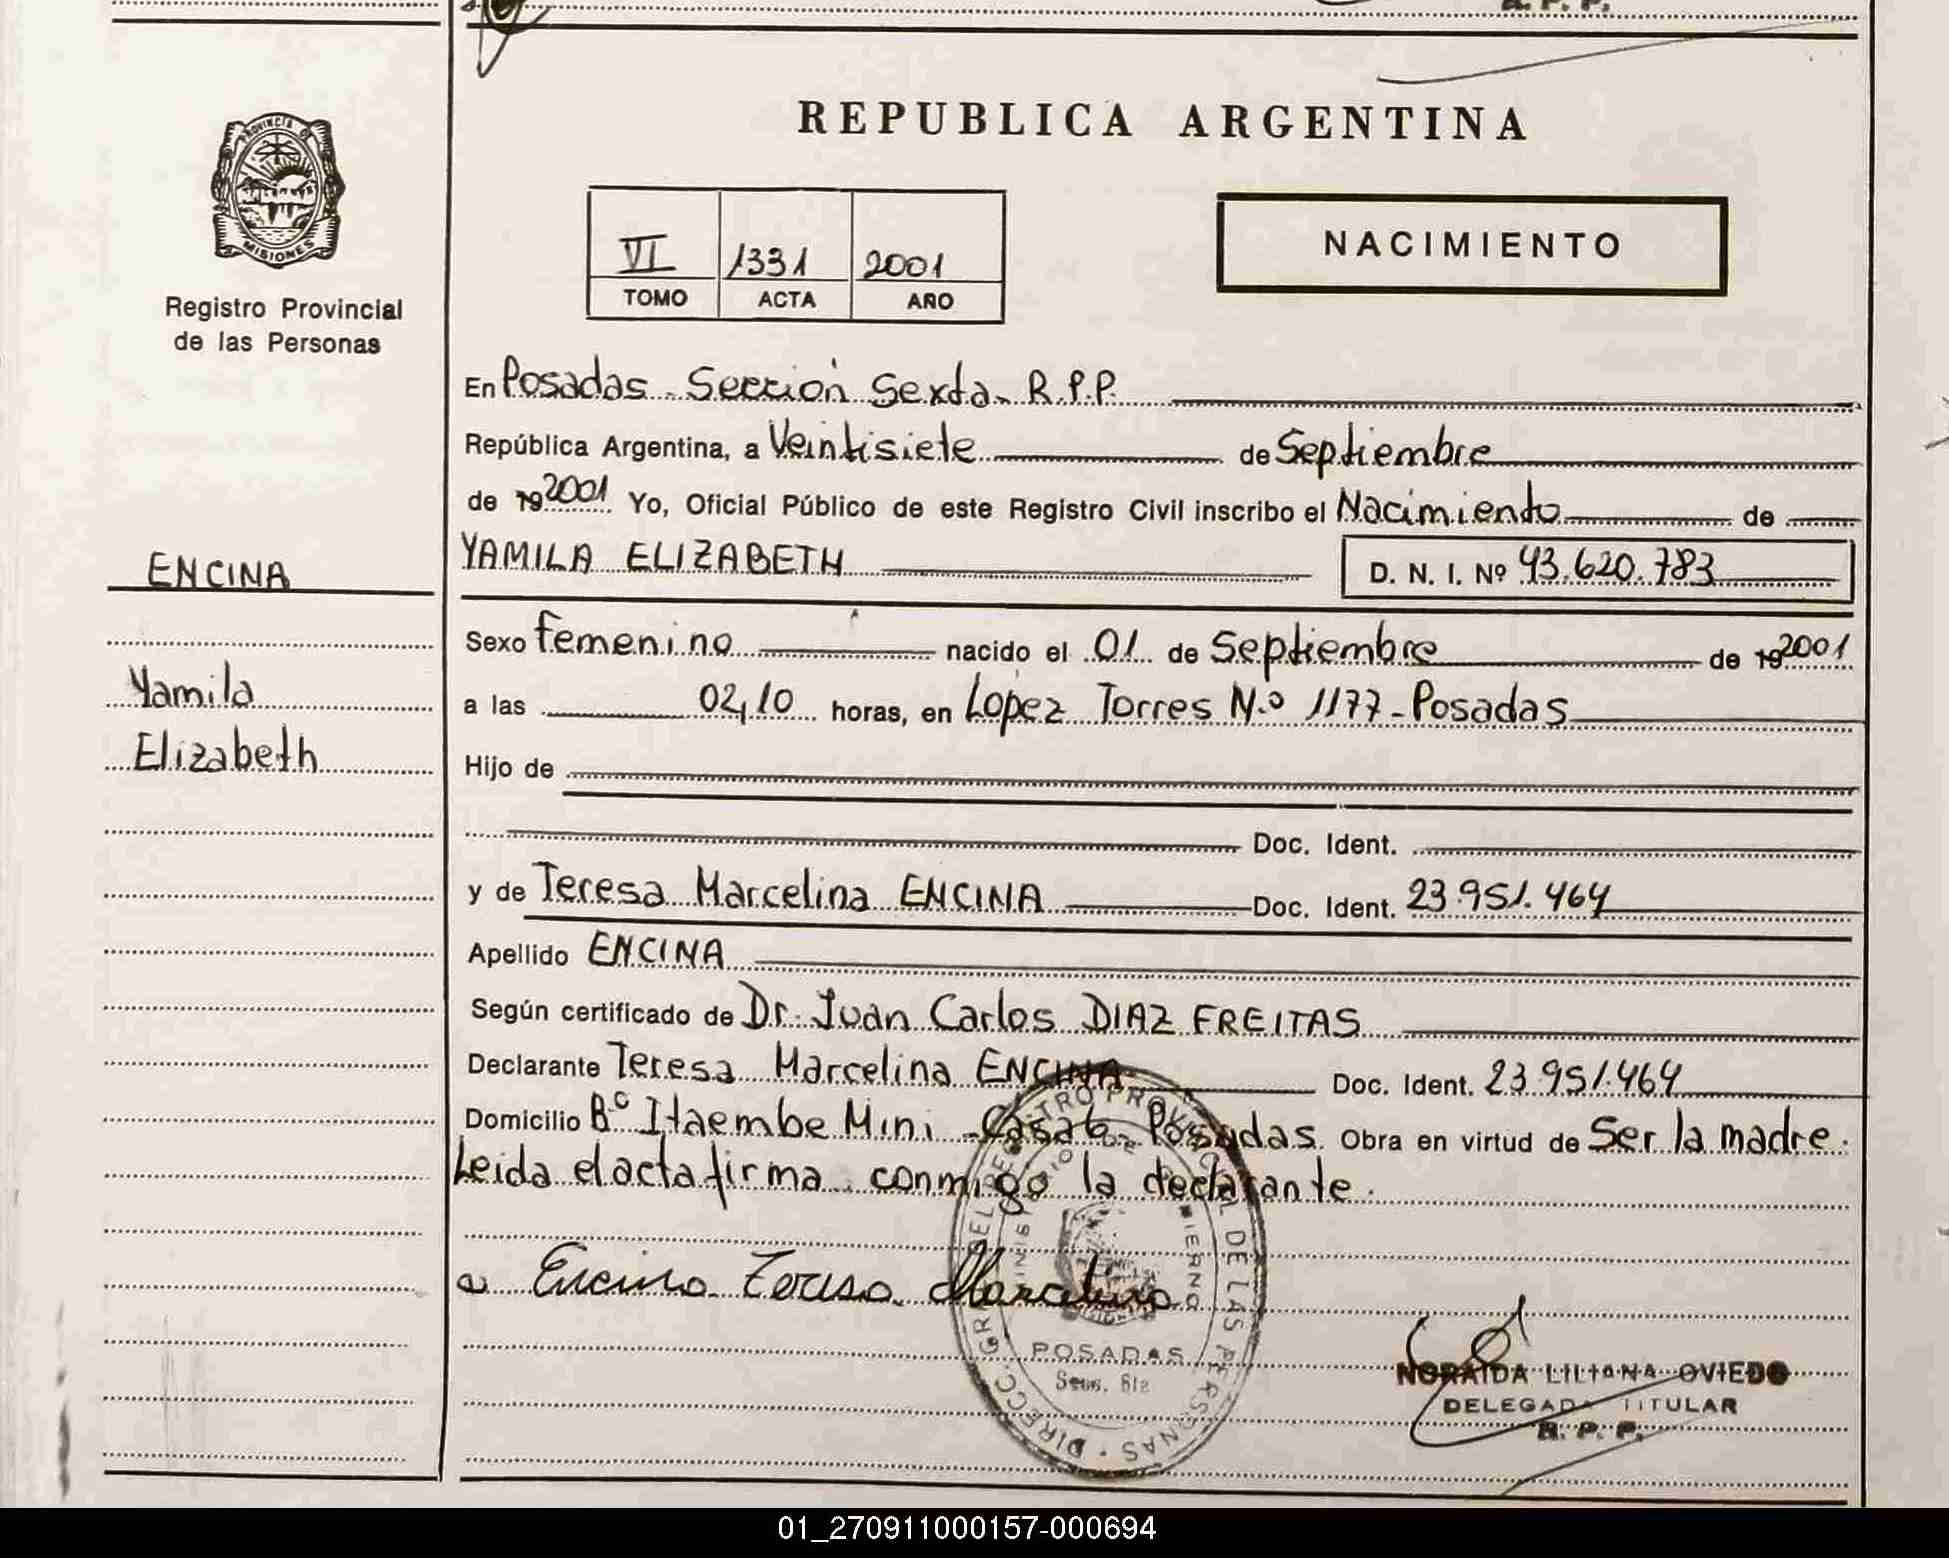 R. P. P.
REPUBLICA ARGENTINA
PROVINCIA DE
MISIONES
Registro Provincial
de las Personas
NACIMIENTO
VI 1331 2001
TOMO ACTA AÑO
En Posadas - Sección Sexta - R.P.P.
República Argentina, a Veintisiete de Septiembre
de 192001 Yo, Oficial Público de este Registro Civil inscribo el Nacimiento de
YAMILA ELIZABETH D. N. I. Nº 43.620.783
ENCINA
Sexo femenino nacido el 01 de Septiembre de 192001
Yamila
a las 02,10 horas, en Lopez Torres N.º 1177 - Posadas
Elizabeth
Hijo de
Doc. Ident.
y de Teresa Marcelina ENCINA Doc. Ident. 23.951.464
Apellido ENCINA
Según certificado de Dr. Juan Carlos DIAZ FREITAS
Declarante Teresa Marcelina ENCINA Doc. Ident. 23.951.464
Domicilio Bº Itaembe Mini - Casa 6 - Posadas. Obra en virtud de Ser la madre.
Leida el acta firma conmigo la declarante.
Encina Teresa Marcelina
DIRECC. GRAL. DEL REGISTRO PROVINCIAL DE LAS PERSONAS
MINISTERIO DE GOBIERNO
POSADAS
NORAIDA LILIANA OVIEDO
DELEGADA TITULAR
R. P. P.
01_270911000157-000694